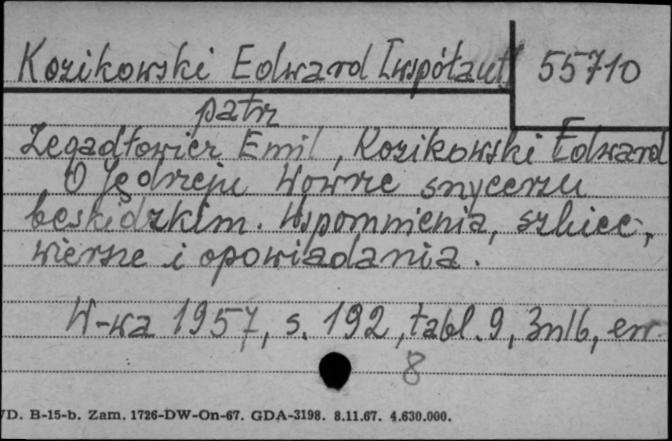 Kozikowski Edward [współaut] 55710
patrz
Zegadłowicz Emil, Kozikowski Edward
O Jędrzeju Wowrze snycerzu
beskidzkim. Wspomnienia, szkice,
wiersze i opowiadania.
W-wa 1957, s. 192, tabl. 9, 3nlb, err
8
D. B-15-b. Zam. 1726-DW-On-67. GDA-3198. 8.11.67. 4.630.000.